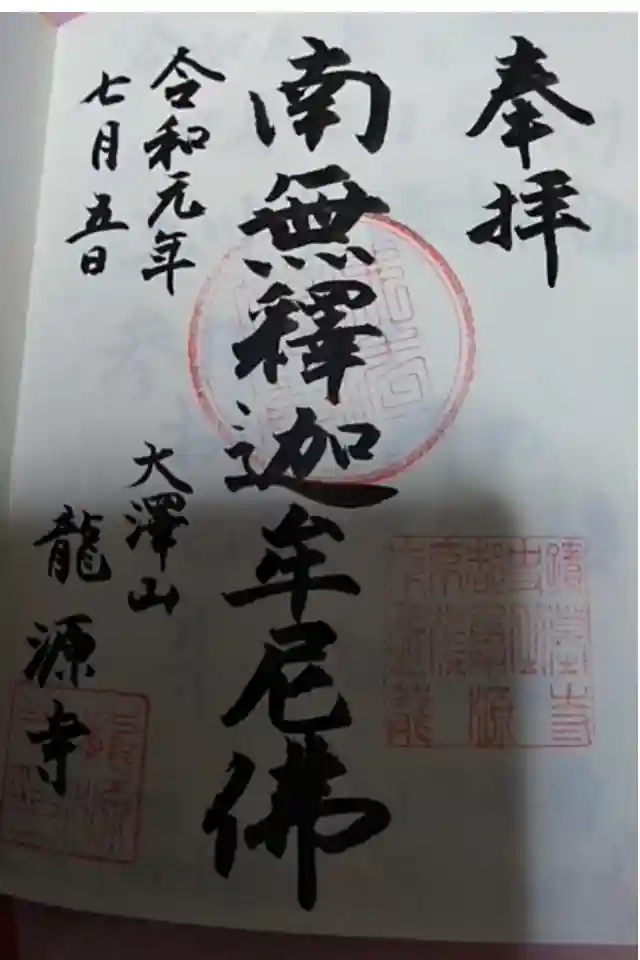 奉拝
南無釋迦牟尼佛
令和元年
七月五日
大澤山
龍源寺